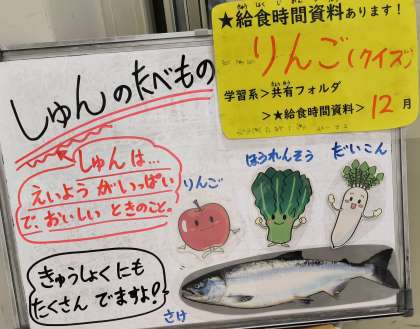 ★給食時間資料あります!
りんご(クイズ)
学習系>共有フォルダ
>★給食時間資料> 12月
しゅんのたべもの
しゅんは…
えいようがいっぱい
で、おいしいときのこと。
りんご
ほうれんそう
だいこん
きゅうしょくにも
たくさんでますよ!
さけ